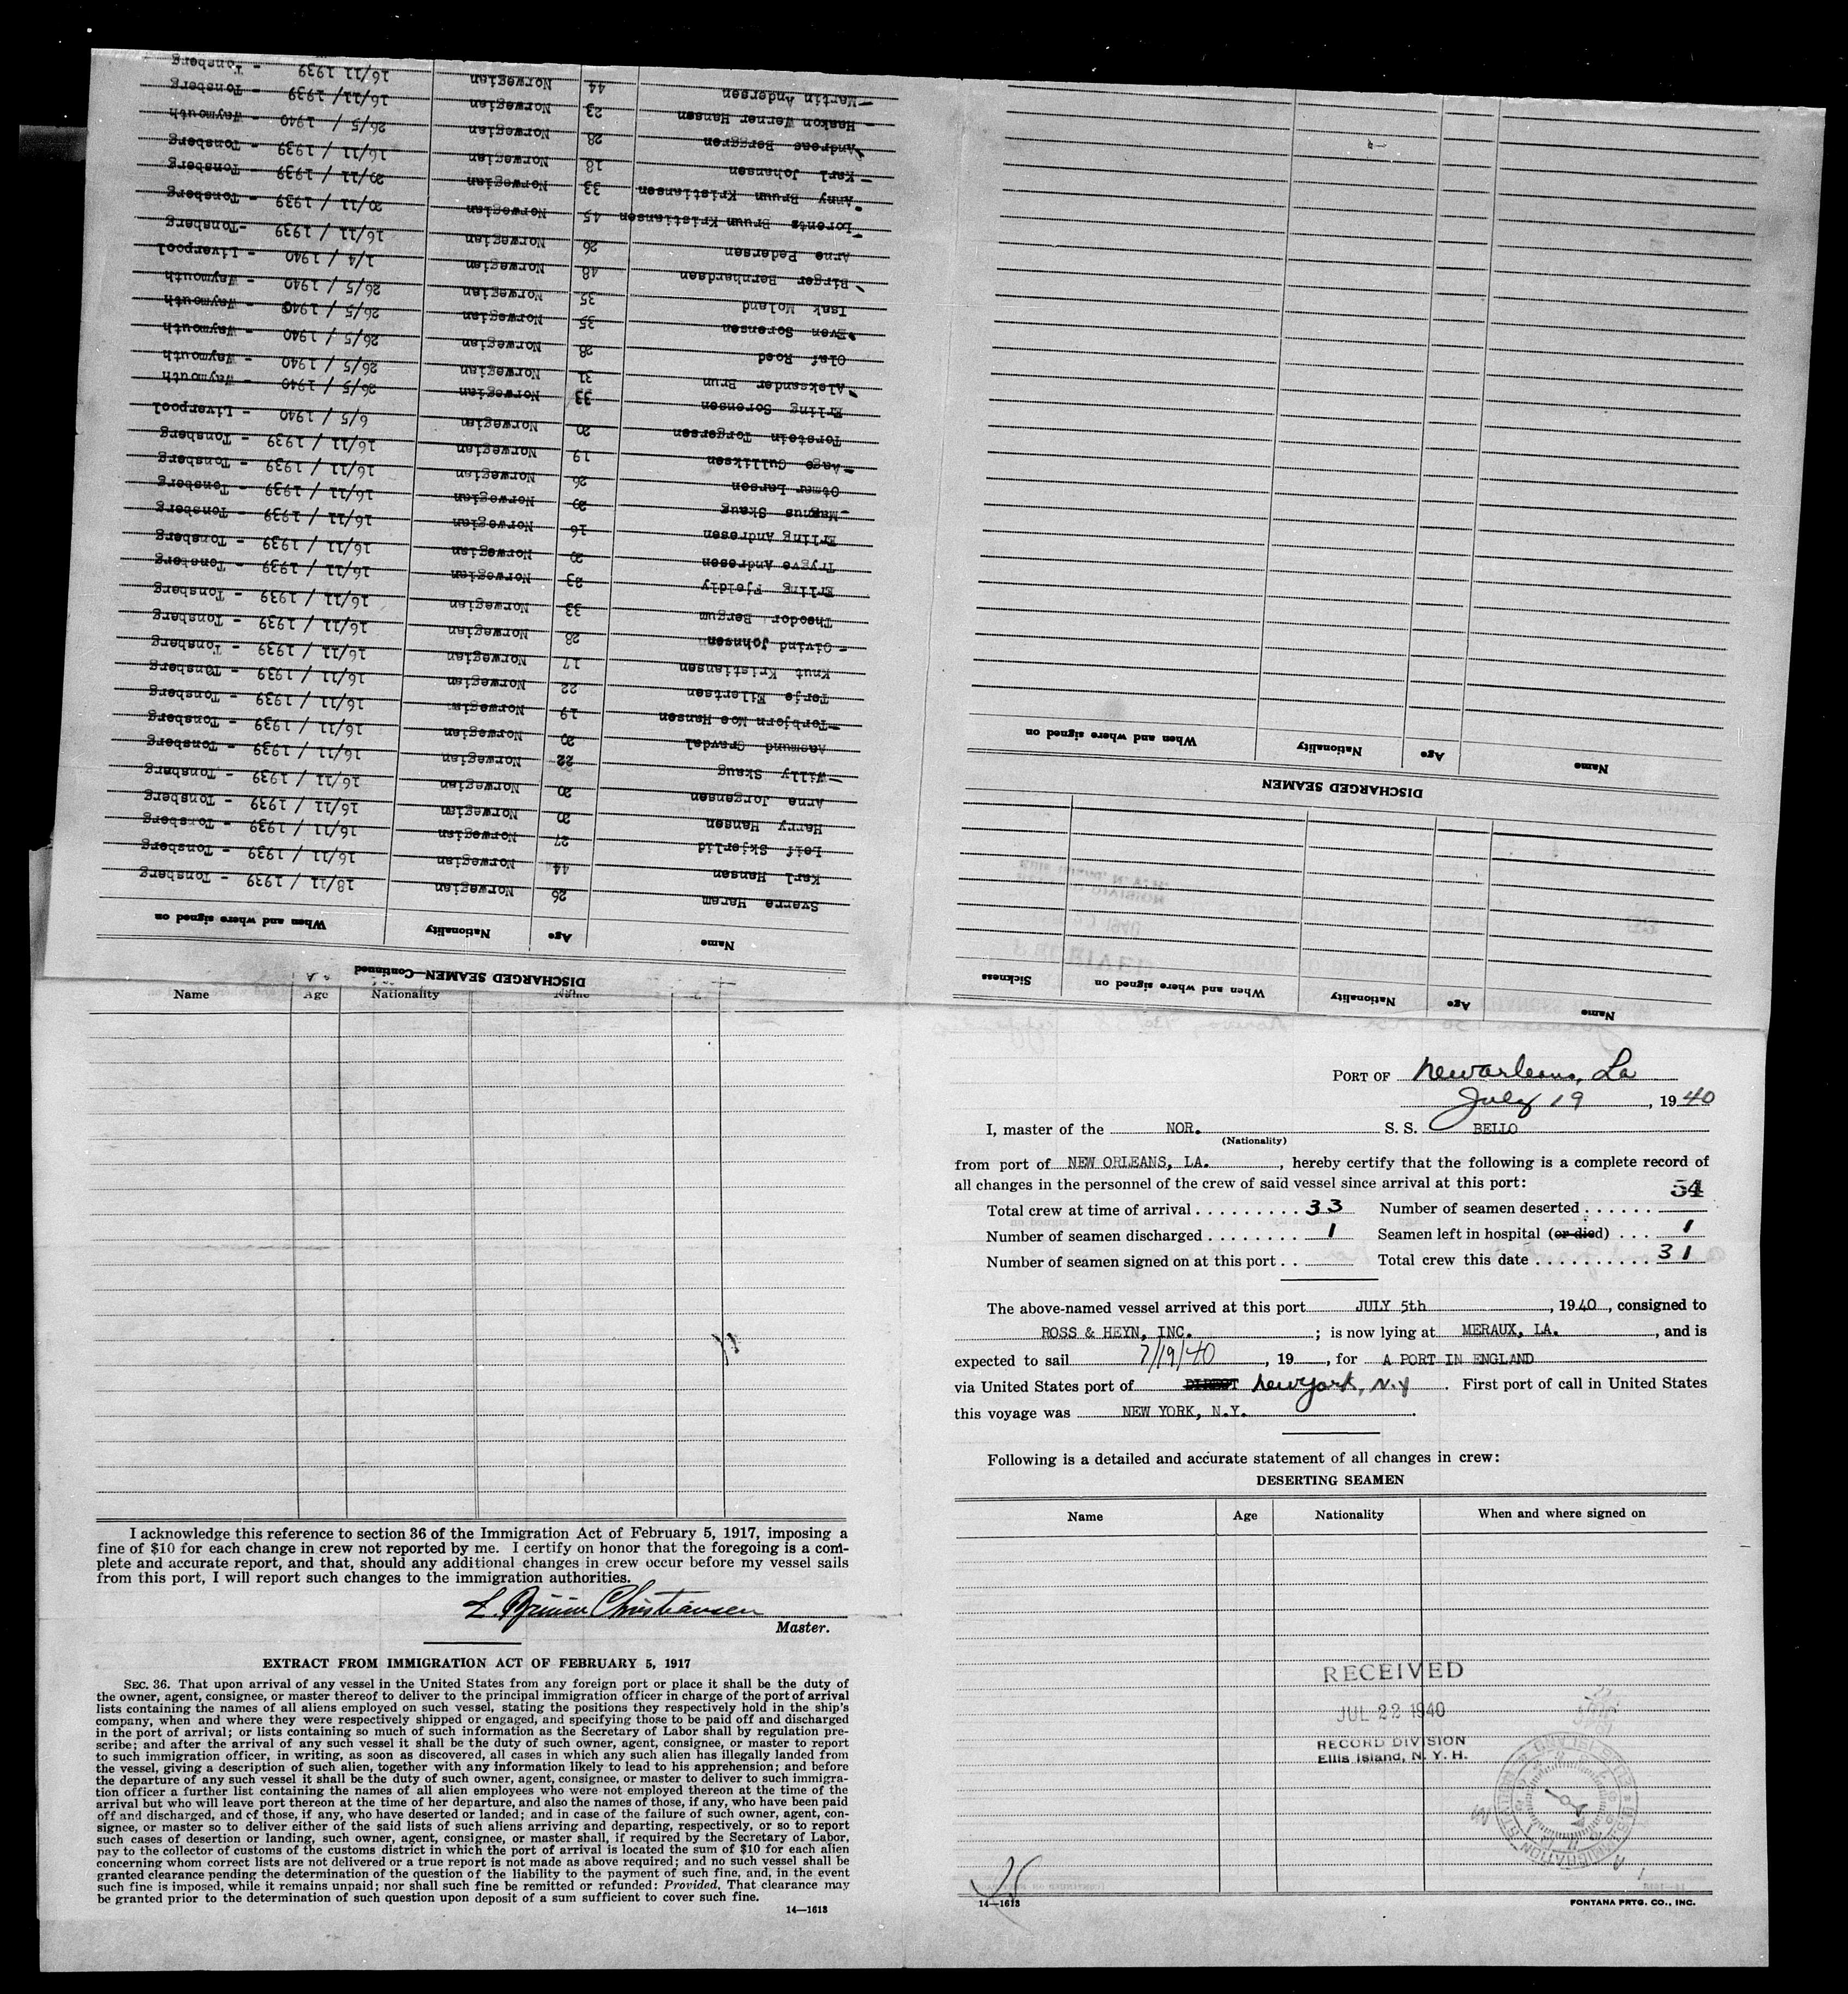 DISCHARGED SEAMEN—Continued
Name Age Nationality When and where signed on
Sverre Haram 26 Norwegian 18/11 / 1939 - Tonsberg
Karl Hansen 44 Norwegian 16/11 / 1939 - Tonsberg
Leif Skjerlid 27 Norwegian 16/11 / 1939 - Tonsberg
Harry Hansen 20 Norwegian 16/11 / 1939 - Tonsberg
Arne Jorgensen 20 Norwegian 16/11 / 1939 - Tonsberg
Willy Skaug 22 Norwegian 16/11 / 1939 - Tonsberg
Aasmund Gravdal 20 Norwegian 16/11 / 1939 - Tonsberg
Torbjorn Moe Hansen 19 Norwegian 16/11 / 1939 - Tonsberg
Terje Eilertsen 22 Norwegian 16/11 / 1939 - Tonsberg
Knut Kristiansen 17 Norwegian 16/11 / 1939 - Tonsberg
Oivind Johnsen 28 Norwegian 16/11 / 1939 - Tonsberg
Theodor Bergum 33 Norwegian 16/11 / 1939 - Tonsberg
Erling Fjeldly 23 Norwegian 16/11 / 1939 - Tonsberg
Trygve Andresen 20 Norwegian 16/11 / 1939 - Tonsberg
Erling Andresen 16 Norwegian 16/11 / 1939 - Tonsberg
Magnus Skaug 20 Norwegian 16/11 / 1939 - Tonsberg
Otmar Larsen 26 Norwegian 16/11 / 1939 - Tonsberg
Aage Gulliksen 19 Norwegian 16/11 / 1939 - Tonsberg
Torstein Torgersen 20 Norwegian 6/5 / 1940 - Liverpool
Erling Sorensen 33 Norwegian 26/5 / 1940 - Waymouth
Aleksander Brun 31 Norwegian 26/5 / 1940 - Waymouth
Olaf Roed 28 Norwegian 26/5 / 1940 - Waymouth
Even Sorensen 35 Norwegian 26/5 / 1940 - Waymouth
Isak Moland 35 Norwegian 26/5 / 1940 - Waymouth
Birger Bernhardsen 48 Norwegian 1/4 / 1940 - Liverpool
Arne Pedersen 26 Norwegian 16/11 / 1939 - Tonsberg
Lorents Bruun Kristiansen 45 Norwegian 20/11 / 1939 - Tonsberg
Anny Bruun Kristiansen 33 Norwegian 20/11 / 1939 - Tonsberg
Karl Johansen 18 Norwegian 16/11 / 1939 - Tonsberg
Andreas Berggren 28 Norwegian 26/5 / 1940 - Waymouth
Haakon Werner Hansen 23 Norwegian 16/11 / 1939 - Tonsberg
Martin Andersen 44 Norwegian 16/11 1939 - Tonsberg
Name Age Nationality When and where signed on Sickness
DISCHARGED SEAMEN
Name Age Nationality When and where signed on
Name Age Nationality
I acknowledge this reference to section 36 of the Immigration Act of February 5, 1917, imposing a
fine of $10 for each change in crew not reported by me. I certify on honor that the foregoing is a com-
plete and accurate report, and that, should any additional changes in crew occur before my vessel sails
from this port, I will report such changes to the immigration authorities.
L. Bruun Christiansen
Master.
EXTRACT FROM IMMIGRATION ACT OF FEBRUARY 5, 1917
SEC. 36. That upon arrival of any vessel in the United States from any foreign port or place it shall be the duty of
the owner, agent, consignee, or master thereof to deliver to the principal immigration officer in charge of the port of arrival
lists containing the names of all aliens employed on such vessel, stating the positions they respectively hold in the ship's
company, when and where they were respectively shipped or engaged, and specifying those to be paid off and discharged
in the port of arrival; or lists containing so much of such information as the Secretary of Labor shall by regulation pre-
scribe; and after the arrival of any such vessel it shall be the duty of such owner, agent, consignee, or master to report
to such immigration officer, in writing, as soon as discovered, all cases in which any such alien has illegally landed from
the vessel, giving a description of such alien, together with any information likely to lead to his apprehension; and before
the departure of any such vessel it shall be the duty of such owner, agent, consignee, or master to deliver to such immigra-
tion officer a further list containing the names of all alien employees who were not employed thereon at the time of the
arrival but who will leave port thereon at the time of her departure, and also the names of those, if any, who have been paid
off and discharged, and of those, if any, who have deserted or landed; and in case of the failure of such owner, agent, con-
signee, or master so to deliver either of the said lists of such aliens arriving and departing, respectively, or so to report
such cases of desertion or landing, such owner, agent, consignee, or master shall, if required by the Secretary of Labor,
pay to the collector of customs of the customs district in which the port of arrival is located the sum of $10 for each alien
concerning whom correct lists are not delivered or a true report is not made as above required; and no such vessel shall be
granted clearance pending the determination of the question of the liability to the payment of such fine, and, in the event
such fine is imposed, while it remains unpaid; nor shall such fine be remitted or refunded: Provided, That clearance may
be granted prior to the determination of such question upon deposit of a sum sufficient to cover such fine.
14—1613
PORT OF New Orleans, La
July 19, 1940
I, master of the NOR. S. S. BELLO
(Nationality)
from port of NEW ORLEANS, LA., hereby certify that the following is a complete record of
all changes in the personnel of the crew of said vessel since arrival at this port:
54
Total crew at time of arrival ......... 33 Number of seamen deserted ......
Number of seamen discharged ........ 1 Seamen left in hospital (or died) ... 1
Number of seamen signed on at this port .. Total crew this date .......... 31
The above-named vessel arrived at this port JULY 5th, 1940, consigned to
ROSS & HEYN, INC.; is now lying at MERAUX, LA., and is
expected to sail 7/19/40, 19 , for A PORT IN ENGLAND
via United States port of DIRECT New York, N.Y. First port of call in United States
this voyage was NEW YORK, N.Y.
Following is a detailed and accurate statement of all changes in crew:
DESERTING SEAMEN
Name Age Nationality When and where signed on
RECEIVED
JUL 22 1940
RECORD DIVISION
Ellis Island, N. Y. H.
14—1613
FONTANA PRTG. CO., INC.